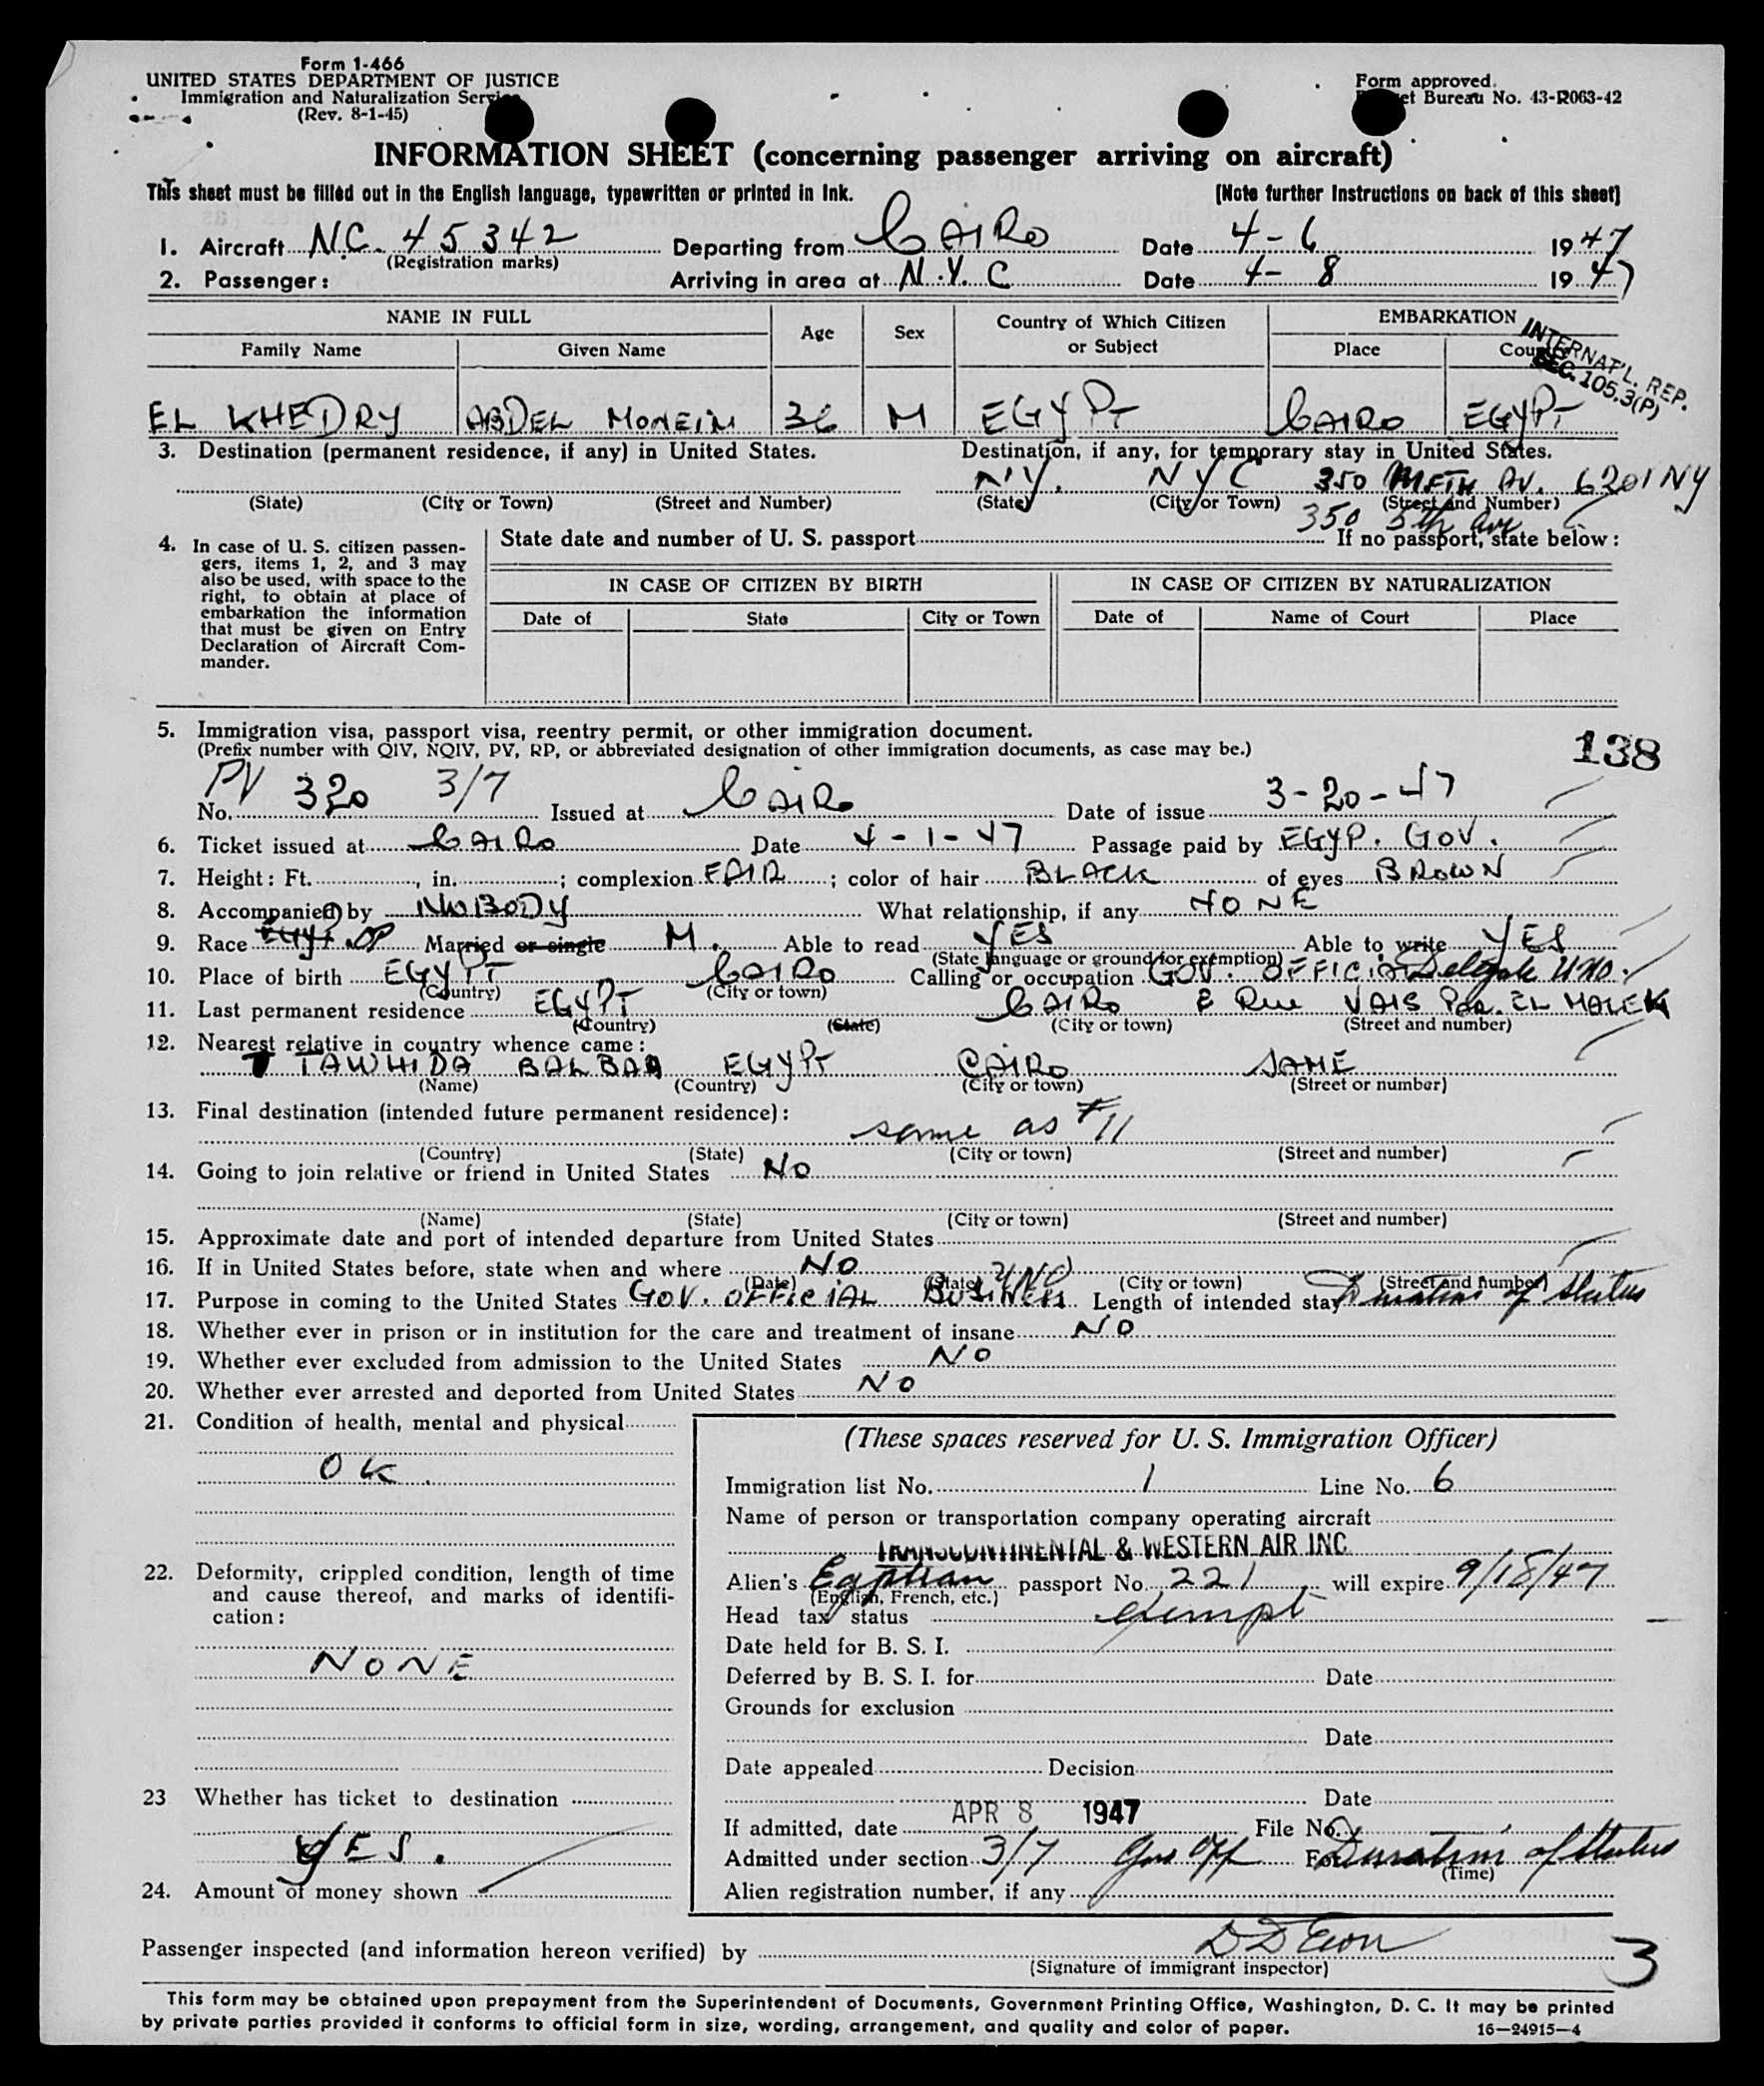 Form 1-466
UNITED STATES DEPARTMENT OF JUSTICE
Immigration and Naturalization Service
(Rev. 8-1-45)
Form approved.
et Bureau No. 43-R063-42
INFORMATION SHEET (concerning passenger arriving on aircraft)
This sheet must be filled out in the English language, typewritten or printed in ink.
(Note further Instructions on back of this sheet)
1. Aircraft N.C. 45342 Departing from CAIRO Date 4-6 1947
(Registration marks)
2. Passenger: Arriving in area at N.Y.C Date 4-8 1947
NAME IN FULL Age Sex Country of Which Citizen or Subject EMBARKATION
Family Name Given Name Place
INTERNAT'L. REP.
SEC. 105.3(P)
EL KHEDRY ABDEL MONEIM 36 M EGYPT CAIRO EGYPT
3. Destination (permanent residence, if any) in United States. Destination, if any, for temporary stay in United States.
N.Y. NYC 350 AV. 6201 NY
(State) (City or Town) (Street and Number) (State) (City or Town) (Street and Number)
350 5th Ave
4. In case of U. S. citizen passengers, items 1, 2, and 3 may also be used, with space to the right, to obtain at place of embarkation the information that must be given on Entry Declaration of Aircraft Commander.
State date and number of U. S. passport If no passport, state below:
IN CASE OF CITIZEN BY BIRTH IN CASE OF CITIZEN BY NATURALIZATION
Date of State City or Town Date of Name of Court Place
5. Immigration visa, passport visa, reentry permit, or other immigration document.
(Prefix number with QIV, NQIV, PV, RP, or abbreviated designation of other immigration documents, as case may be.)
138
No. PV 320 3/7 Issued at CAIRO Date of issue 3-20-47
6. Ticket issued at CAIRO Date 4-1-47 Passage paid by EGYP. GOV.
7. Height: Ft. , in. ; complexion FAIR ; color of hair BLACK of eyes BROWN
8. Accompanied by NOBODY What relationship, if any NONE
9. Race EGYP Married or single M. Able to read YES Able to write YES
(State language or ground for exemption)
10. Place of birth EGYPT CAIRO Calling or occupation GOV. OFFICIAL Delegate UNO.
(Country) (City or town)
11. Last permanent residence EGYPT CAIRO 8 Rue EL MALEK
(Country) (State) (City or town) (Street and number)
12. Nearest relative in country whence came:
TAWHIDA EGYPT CAIRO SAME
(Name) (Country) (City or town) (Street or number)
13. Final destination (intended future permanent residence):
same as #11
(Country) (State) (City or town) (Street and number)
14. Going to join relative or friend in United States NO
(Name) (State) (City or town) (Street and number)
15. Approximate date and port of intended departure from United States
16. If in United States before, state when and where NO
(Date) (State) (City or town) (Street and number)
UNO
17. Purpose in coming to the United States GOV. OFFICIAL BUSINESS Length of intended stay Duration of Status
18. Whether ever in prison or in institution for the care and treatment of insane NO
19. Whether ever excluded from admission to the United States NO
20. Whether ever arrested and deported from United States NO
21. Condition of health, mental and physical
OK.
22. Deformity, crippled condition, length of time and cause thereof, and marks of identification:
NONE
23 Whether has ticket to destination
YES.
24. Amount of money shown
(These spaces reserved for U. S. Immigration Officer)
Immigration list No. 1 Line No. 6
Name of person or transportation company operating aircraft
TRANSCONTINENTAL & WESTERN AIR INC
Alien's Egptian passport No. 221 will expire 9/18/47
(English, French, etc.)
Head tax status exempt
Date held for B. S. I.
Deferred by B. S. I. for Date
Grounds for exclusion
Date
Date appealed Decision
Date
If admitted, date APR 8 1947 File No.
Admitted under section 3/7 Gov Off For Duration of Status
(Time)
Alien registration number, if any
Passenger inspected (and information hereon verified) by
(Signature of immigrant inspector)
3
This form may be obtained upon prepayment from the Superintendent of Documents, Government Printing Office, Washington, D. C. It may be printed
by private parties provided it conforms to official form in size, wording, arrangement, and quality and color of paper.
16—24915-4